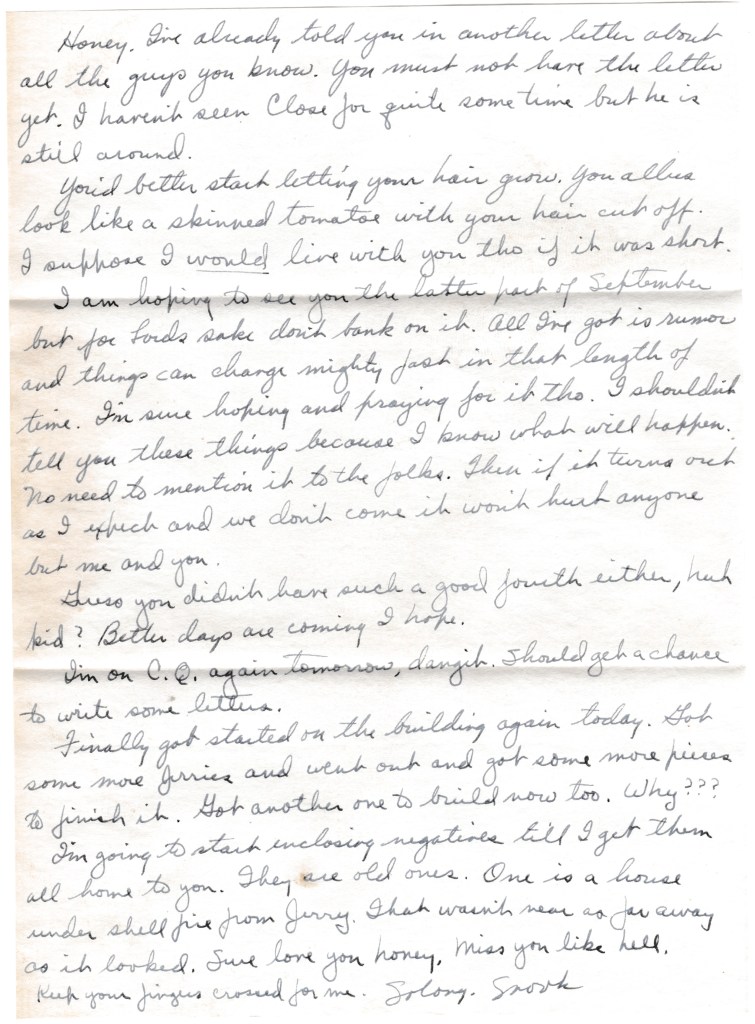 Honey. I've already told you in another letter about
all the guys you know. You must not have the letter
yet. I haven't seen Close for quite some time but he is
still around.
You'd better start letting your hair grow. You allus
look like a skinned tomatoe with your hair cut off.
I suppose I would live with you tho if it was short.
I am hoping to see you the latter part of September
but for Lords sake don't bank on it. All I've got is rumor
and things can change mighty fast in that length of
time. I'm sure hoping and praying for it tho. I shouldn't
tell you these things because I know what will happen.
No need to mention it to the folks. Then if it turns out
as I expect and we don't come it won't hurt anyone
but me and you.
Guess you didn't have such a good fourth either, huh
kid? Better days are coming I hope.
I'm on C.Q. again tomorrow, dangit. Should get a chance
to write some letters.
Finally got started on the building again today. Got
some more Jerries and went out and got some more pieces
to finish it. Got another one to build now too. Why???
I'm going to start enclosing negatives till I get them
all home to you. They are old ones. One is a house
under shell fire from Jerry. That wasn't near as far away
as it looked. Sure love you honey. Miss you like hell.
Keep your fingers crossed for me. Solong. Snook